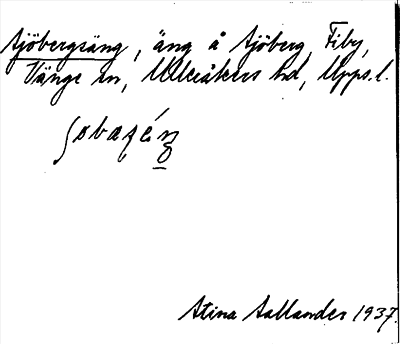 Sjöbergsäng, äng å Sjöberg, Fiby,
Vänge sn, Ulleråkers hd, Upps.l.
Stina Sallander 1937.